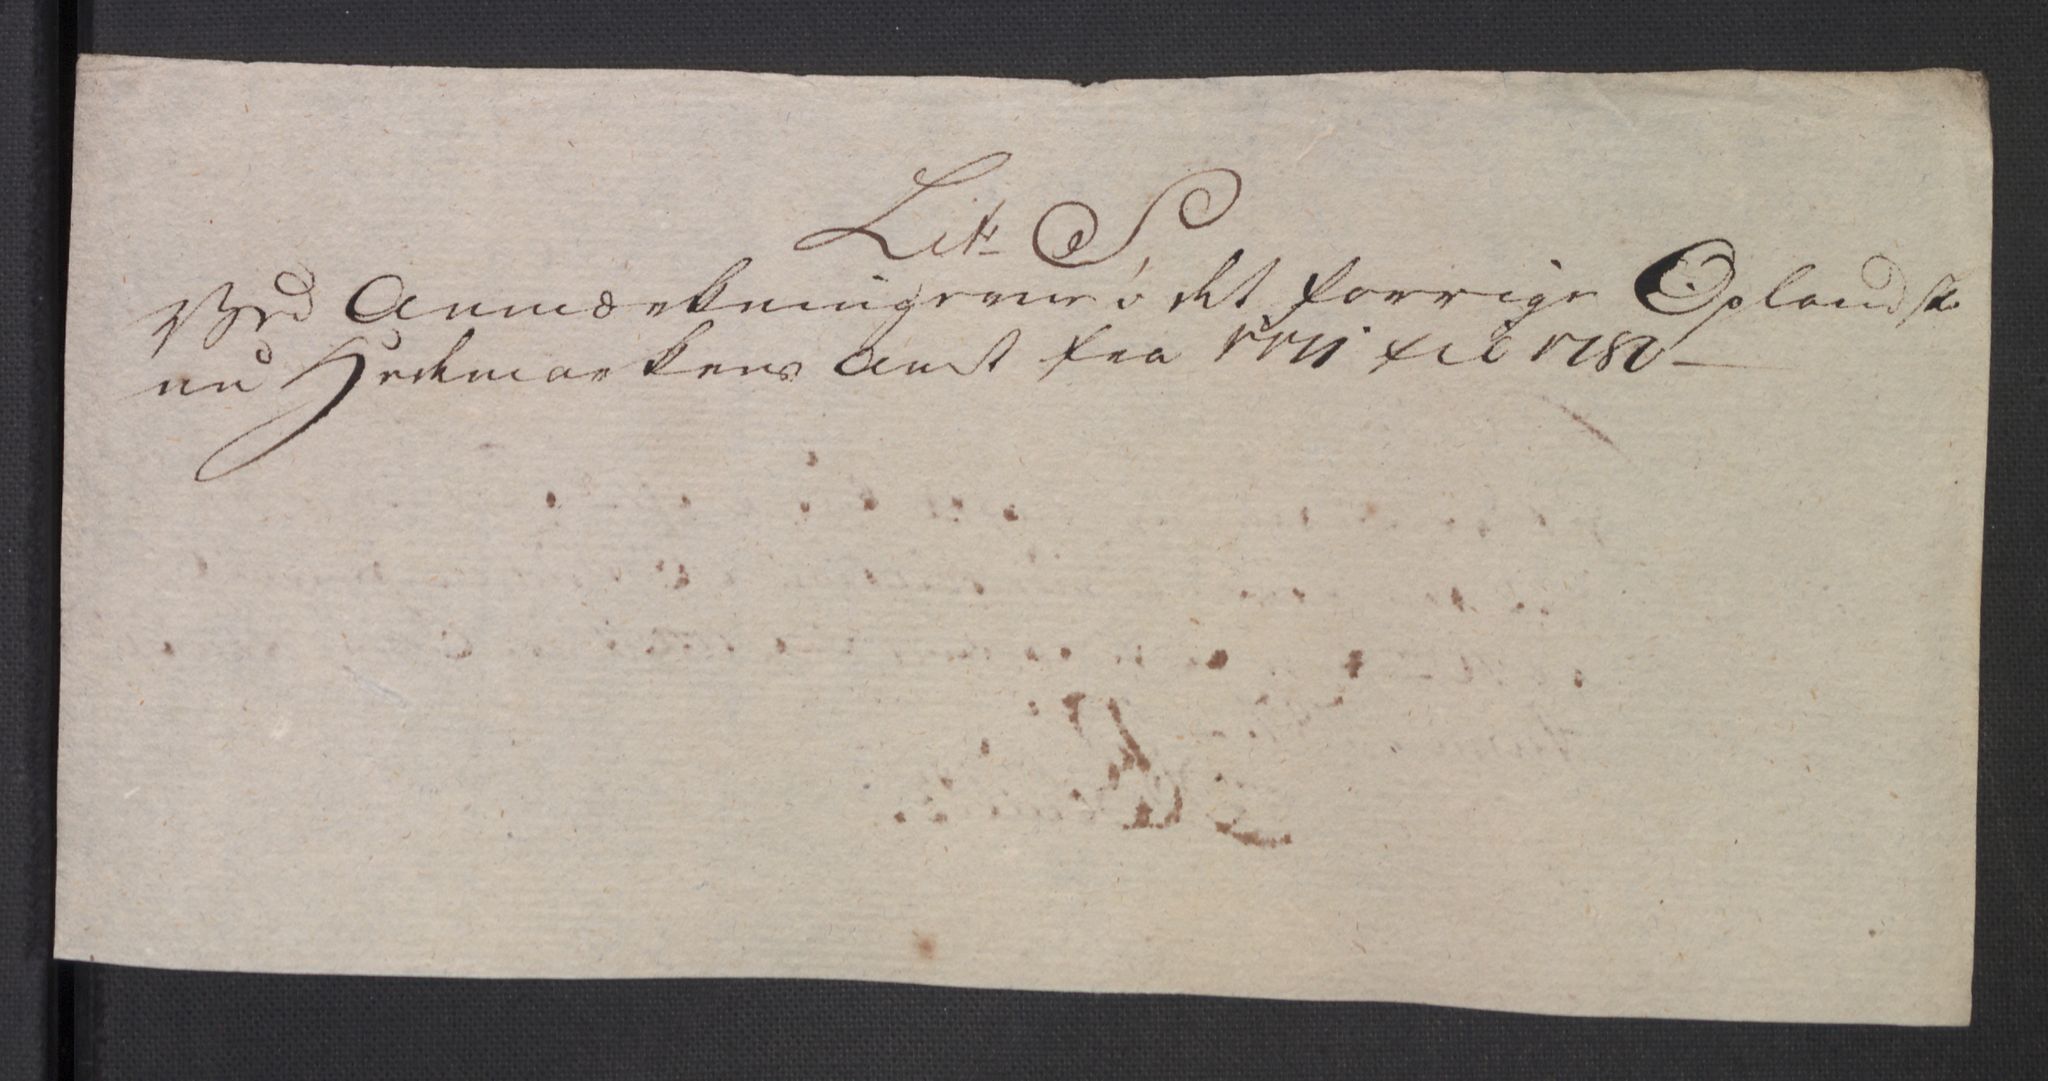 Litr S
Ved Anmærkningerne i det forrige Oplandske
nu Hedemarkens Amt fra 1771 til 1780